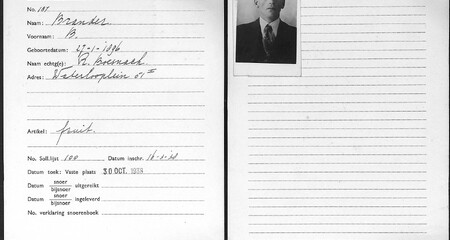 No. 187
Naam : Brander
Voornaam : B.
Geboortedatum: 27-1-1896
Naam echtg(e): R. Boesnach
Adres: Waterlooplein 61 II
Artikel: fruit.
No. Soll.lijst 100 Datum inschr.
Datum toek: Vaste plaats 30 OCT. 1939
Datum snoer bijsnoer uitgereikt
Datum snoer bijsnoer ingeleverd
No. verklaring snoerenboek